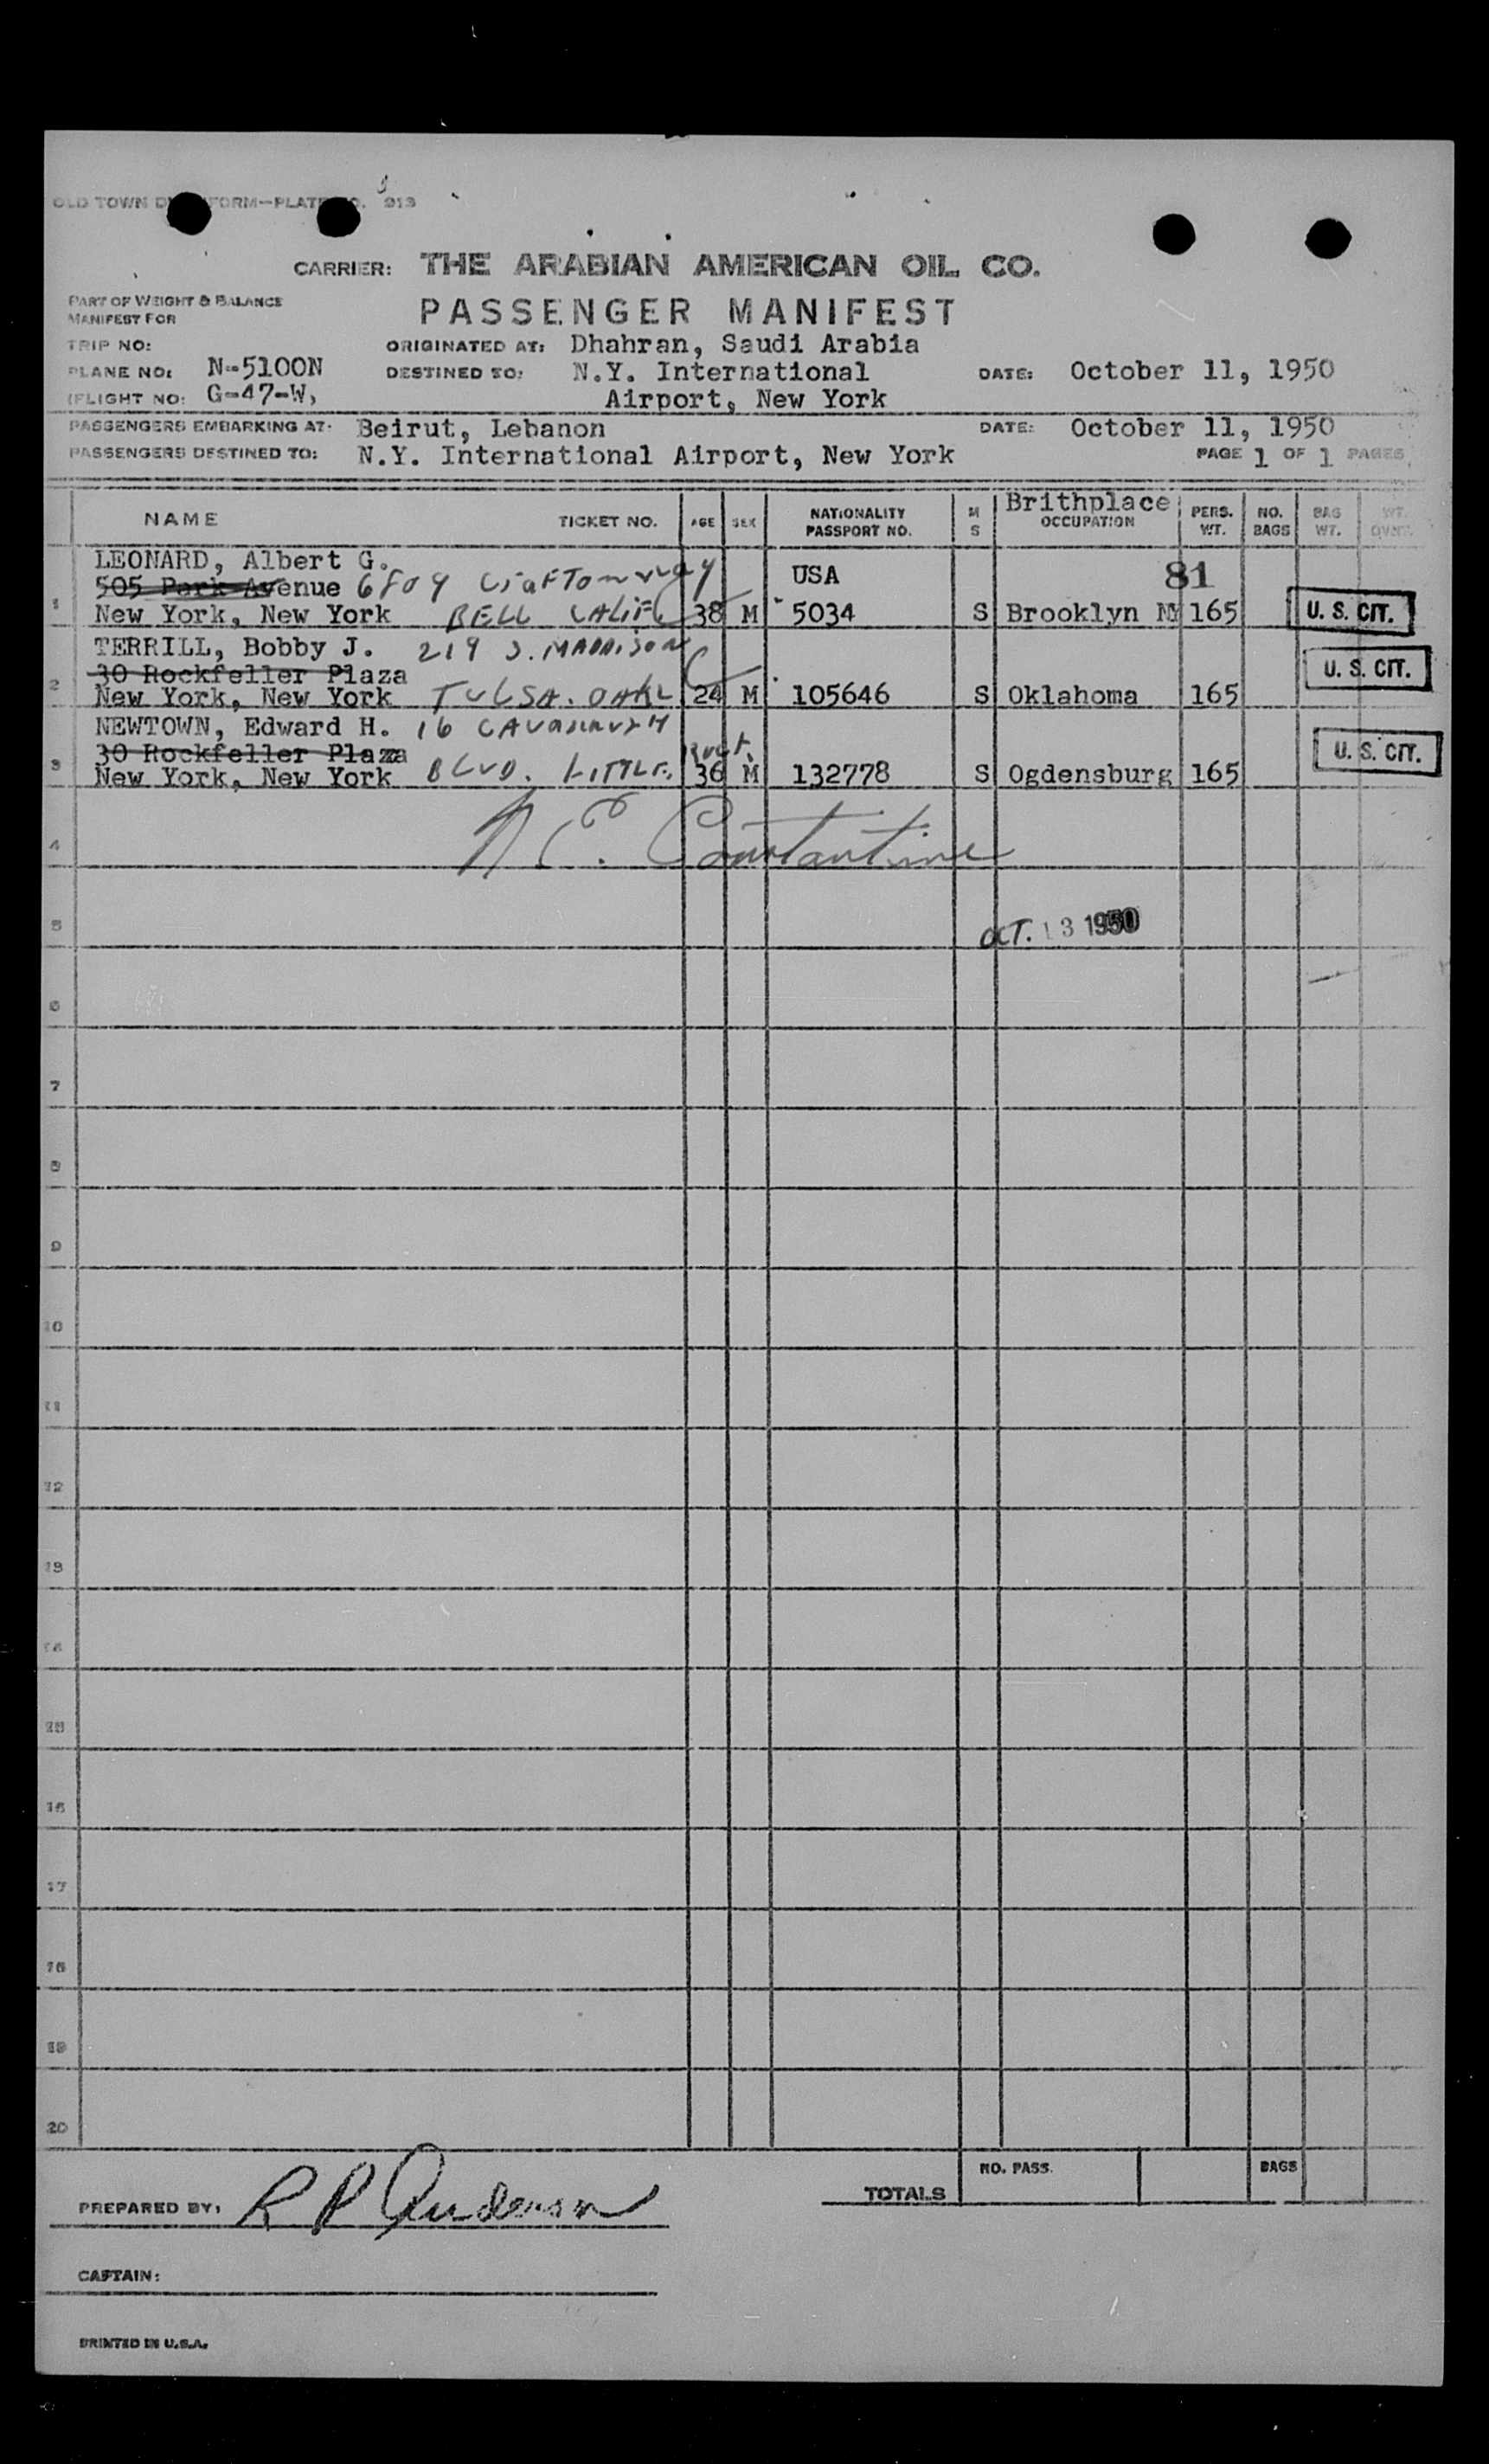 OLD TOWN FORM—PLATE 913
CARRIER: THE ARABIAN AMERICAN OIL CO.
PART OF WEIGHT & BALANCE
MANIFEST FOR
PASSENGER MANIFEST
TRIP NO:
ORIGINATED AT: Dhahran, Saudi Arabia
PLANE NO: N-5100N DESTINED TO: N.Y. International DATE: October 11, 1950
FLIGHT NO: G-47-W, Airport, New York
PASSENGERS EMBARKING AT: Beirut, Lebanon DATE: October 11, 1950
PASSENGERS DESTINED TO: N.Y. International Airport, New York PAGE 1 OF 1 PAGES
NAME TICKET NO. AGE SEX NATIONALITY PASSPORT NO. M S Brithplace OCCUPATION PERS. WT. NO. BAGS BAG WT. WT.
LEONARD, Albert G.
505 Park Avenue 6809 Craftonway USA 81
1 New York, New York BELL CALIF 38 M 5034 S Brooklyn NY 165 U. S. CIT.
TERRILL, Bobby J. 219 S. MADDISON
30 Rockfeller Plaza U. S. CIT.
2 New York, New York TULSA. OAKL 24 M 105646 S Oklahoma 165
NEWTOWN, Edward H. 16 CAVANAUGH
30 Rockfeller Plaza U. S. CIT.
3 New York, New York BLVD. LITTLE 36 M 132778 S Ogdensburg 165
4 N C. Constantine
5 OCT. 13 1950
6
7
8
9
10
11
12
13
14
15
16
17
18
19
20
NO. PASS. BAGS
TOTALS
PREPARED BY: R P Anderson
CAPTAIN:
PRINTED IN U.S.A.